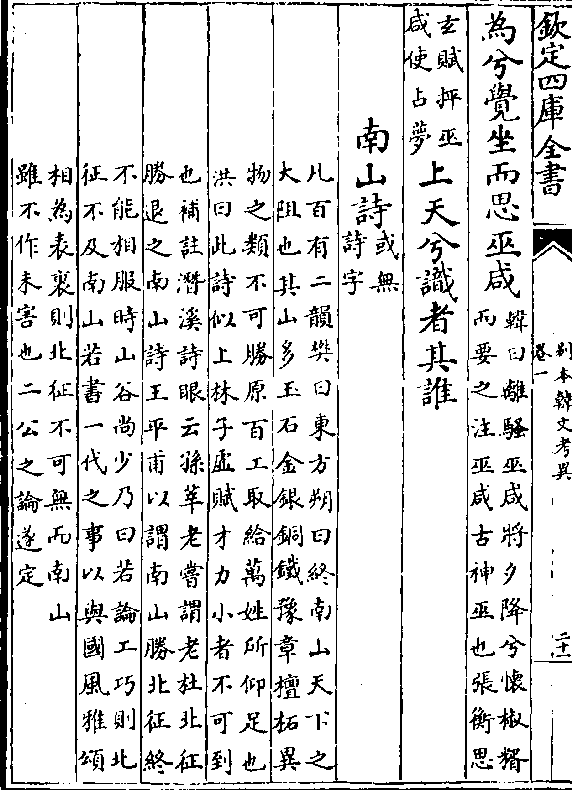 欽定四庫全書
别本韓文考異
卷一
二十一
為兮覺坐而思巫咸
韓曰離騷巫咸將夕降兮懷椒糈
而要之注巫咸古神巫也張衡思
玄賦抨巫
咸使占夢
上天兮識者其誰
南山詩
或無
詩字
凡百有二韻樊曰東方朔曰終南山天下之
大阻也其山多玉石金銀銅鐵豫章檀柘異
物之類不可勝原百工取給萬姓所仰足也
洪曰此詩似上林子虛賦才力小者不可到
也補註潛溪詩眼云孫莘老嘗謂老杜北征
勝退之南山詩王平甫以謂南山勝北征終
不能相服時山谷尚少乃曰若論工巧則北
征不及南山若書一代之事以與國風雅頌
相為表裏則北征不可無而南山
雖不作未害也二公之論遂定